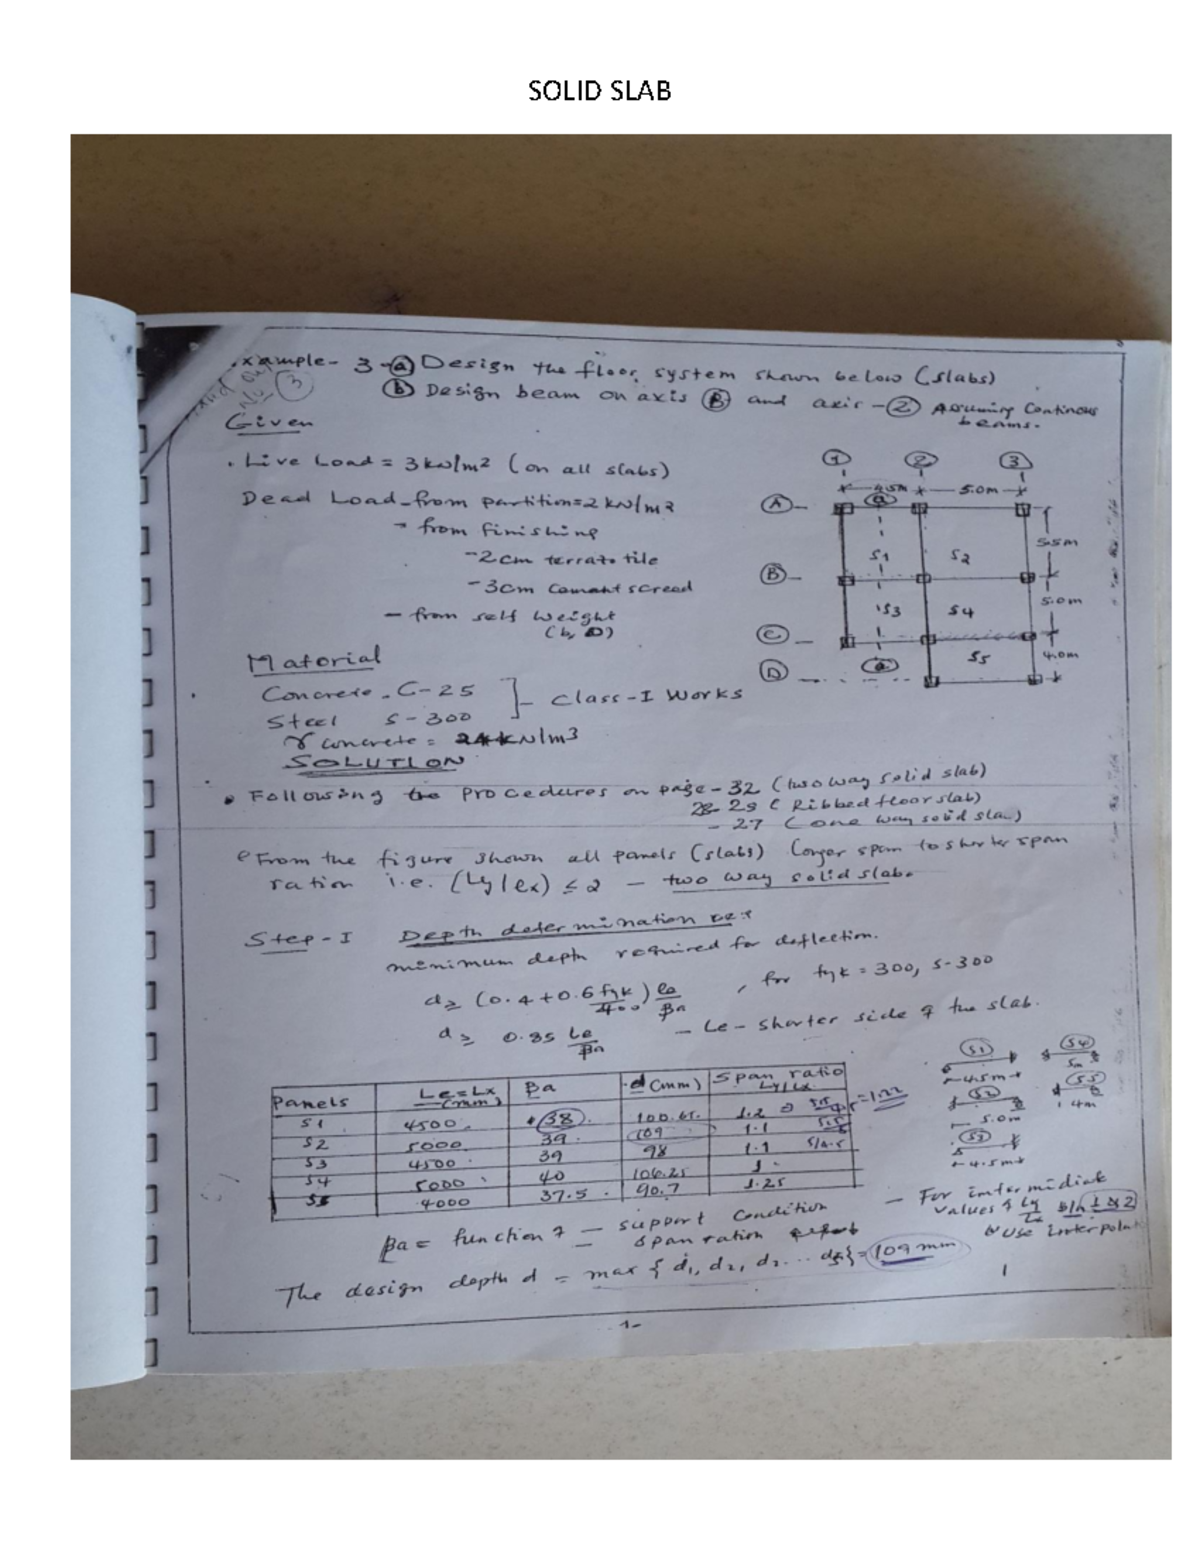 SOLID SLAB
Example - 3 - (a) Design the floor system shown below (slabs)
(b) Design beam on axis (B) and axis - (2) Assuming Continous beams.
No
(3)
Given
. Live Load = 3 kN/m2 (on all slabs)
Dead Load - from partition = 2 kN/m2
- from finishing
- 2cm terrazo tile
- 3cm cement screed
- from self weight
(by D)
Material
Concrete - C-25
Steel S-300
Class-I Works
γ concrete = 24 kN/m3
SOLUTION
(1) (2) (3)
4.5m 5.0m
(A) (a)
S1 S2 5.5m
(B)
S3 S4 5.0m
(C)
S5 4.0m
(D) (a)
• Following the procedures on page - 32 (two way solid slab)
28-29 (Ribbed floor slab)
- 27 (one way solid slab)
From the figure shown all panels (slabs) longer span to shorter span
ration i.e. (Ly/lx) ≤ 2 - two way solid slab.
Step - I Depth determination
minimum depth required for deflection.
d ≥ (0.4 + 0.6 fyk/400) le/βa , for fyk = 300, S-300
d ≥ 0.85 Le/βa - Le - shorter side of the slab.
Panels Le = Lx (mm) βa d (mm) Span ratio Ly/Lx
S1 4500 38 100.65 1.2 5.5/4.5 = 1.22
S2 5000 39 109 1.1 5.5/5
S3 4500 39 98 1.1 5/4.5
S4 5000 40 106.25 1
S5 4000 37.5 90.7 1.25
(S1) (S4)
4.5m 5m
(S2) (S5)
5.0m 4m
(S3)
4.5m
βa = function of - support condition
- span ration
- For intermidiate
values of Ly/Lx b/n 1 & 2
Use interpolat
The design depth d = max { d1, d2, d3 ... d5 } = 109 mm
1
-1-